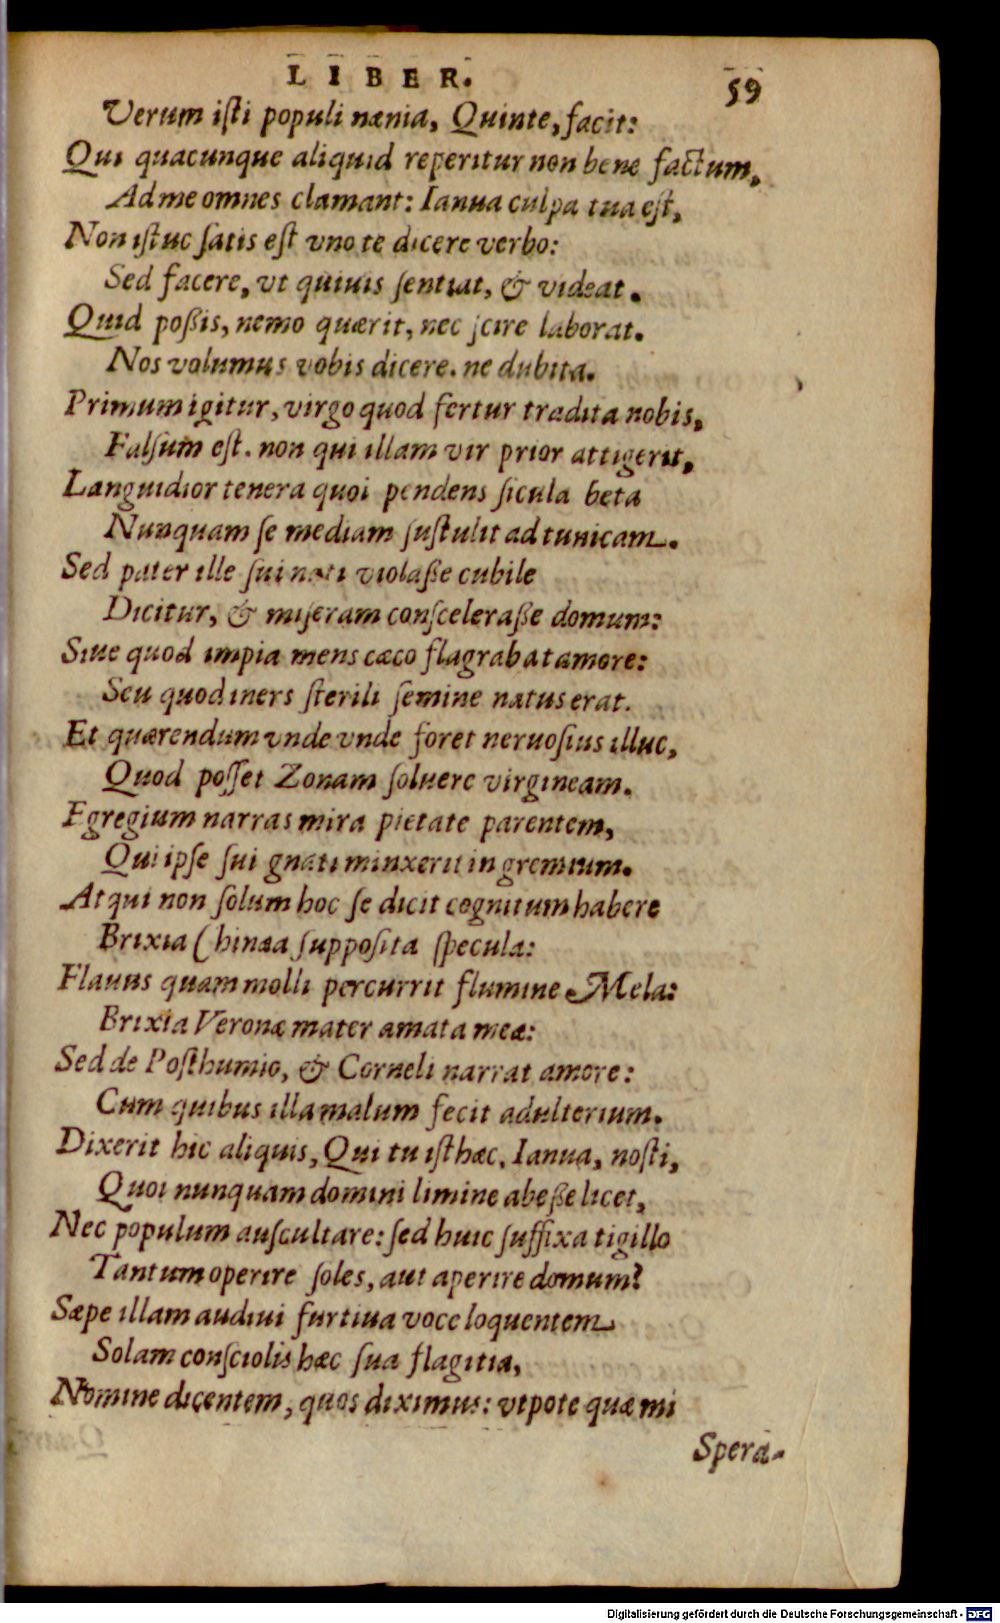 LIBER. 59
Verum isti populi nænia, Quinte, facit:
Qui quacunque aliquid reperitur non bene factum,
Ad me omnes clamant: Ianua culpa tua est,
Non istuc satis est vno te dicere verbo:
Sed facere, vt quiuis sentiat, & videat.
Quid poßis, nemo quærit, nec scire laborat.
Nos volumus vobis dicere. ne dubita.
Primum igitur, virgo quod fertur tradita nobis,
Falsum est. non qui illam vir prior attigerit,
Languidior tenera quoi pendens sicula beta
Nunquam se mediam sustulit ad tunicam.
Sed pater ille sui nati violaße cubile
Dicitur, & miseram consceleraße domum:
Siue quod impia mens cæco flagrabat amore:
Seu quod iners sterili semine natus erat.
Et quærendum vnde vnde foret neruosius illuc,
Quod posset Zonam soluere virgineam.
Egregium narras mira pietate parentem,
Qui ipse sui gnati minxerit in gremium.
Atqui non solum hoc se dicit cognitum habere
Brixia Chinæa supposita specula:
Flauus quam molli percurrit flumine Mela:
Brixia Veronæ mater amata meæ:
Sed de Posthumio, & Corneli narrat amore:
Cum quibus illa malum fecit adulterium.
Dixerit hic aliquis, Qui tu isthæc, Ianua, nosti,
Quoi nunquam domini limine abeße licet,
Nec populum auscultare: sed huic suffixa tigillo
Tantum operire soles, aut aperire domum?
Sæpe illam audiui furtiua voce loquentem
Solam consciolis hæc sua flagitia,
Nomine dicentem, quos diximus: vtpote quæ mi
Spera-
Digitalisierung gefördert durch die Deutsche Forschungsgemeinschaft - DFG